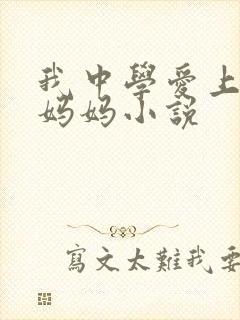 我中學愛上
媽媽小説
寫文太難我要